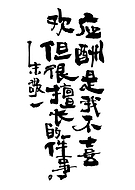 应酬是我不喜
欢但很擅长的件事。
—宋敬一